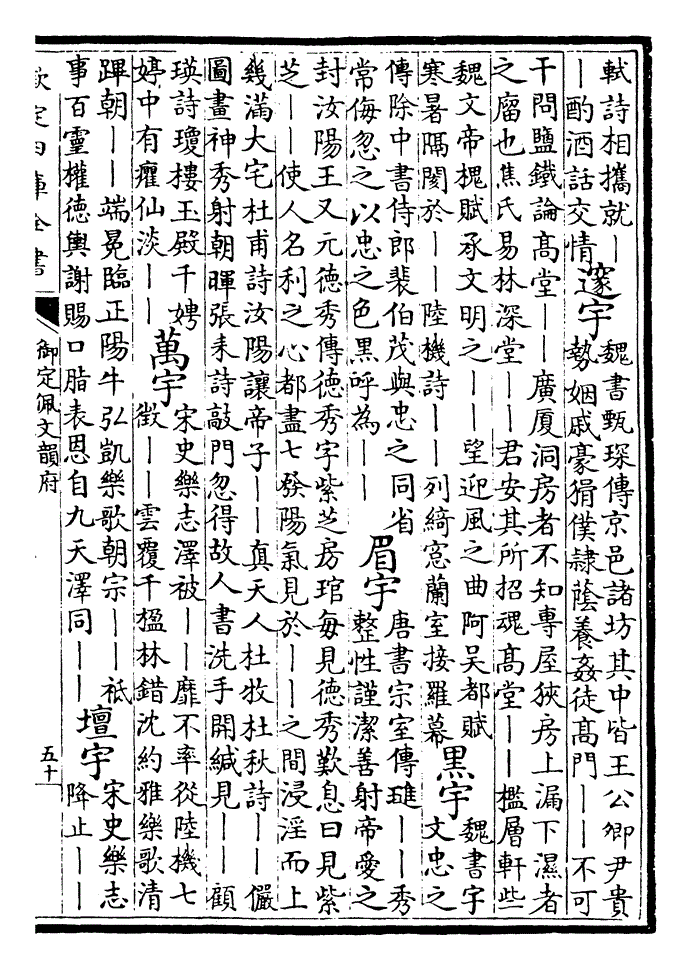 軾詩相攜就｜
｜酌酒話交情
邃宇
魏書甄琛傳京邑諸坊其中皆王公卿尹貴
勢姻戚豪猾僕隸蔭養姦徒高門｜｜不可
干問鹽鐵論高堂｜｜廣厦洞房者不知專屋狹房上漏下濕者
之廇也焦氏易林深堂｜｜君安其所招魂高堂｜｜檻層軒些
魏文帝槐賦承文明之｜｜望迎風之曲阿吳都賦
寒暑隔閡於｜｜陸機詩｜｜列綺窓蘭室接羅幕
黑宇
魏書宇
文忠之
傳除中書侍郎裴伯茂與忠之同省
常侮忽之以忠之色黑呼為｜｜
眉宇
唐書宗室傳璡｜｜秀
整性謹潔善射帝愛之
封汝陽王又元德秀傳德秀字紫芝房琯每見德秀歎息曰見紫
芝｜｜使人名利之心都盡七發陽氣見於｜｜之間浸淫而上
幾滿大宅杜甫詩汝陽讓帝子｜｜真天人杜牧杜秋詩｜｜儼
圖畫神秀射朝暉張耒詩敲門忽得故人書洗手開緘見｜｜顧
瑛詩瓊樓玉殿千娉
婷中有癯仙淡｜｜
萬宇
宋史樂志澤被｜｜靡不率從陸機七
徵｜｜雲覆千楹林錯沈約雅樂歌清
蹕朝｜｜端冕臨正陽牛弘凱樂歌朝宗｜｜祇
事百靈權德輿謝賜口脂表恩自九天澤同｜｜
壇宇
宋史樂志
降止｜｜
欽定四庫全書
御定佩文韻府
五十